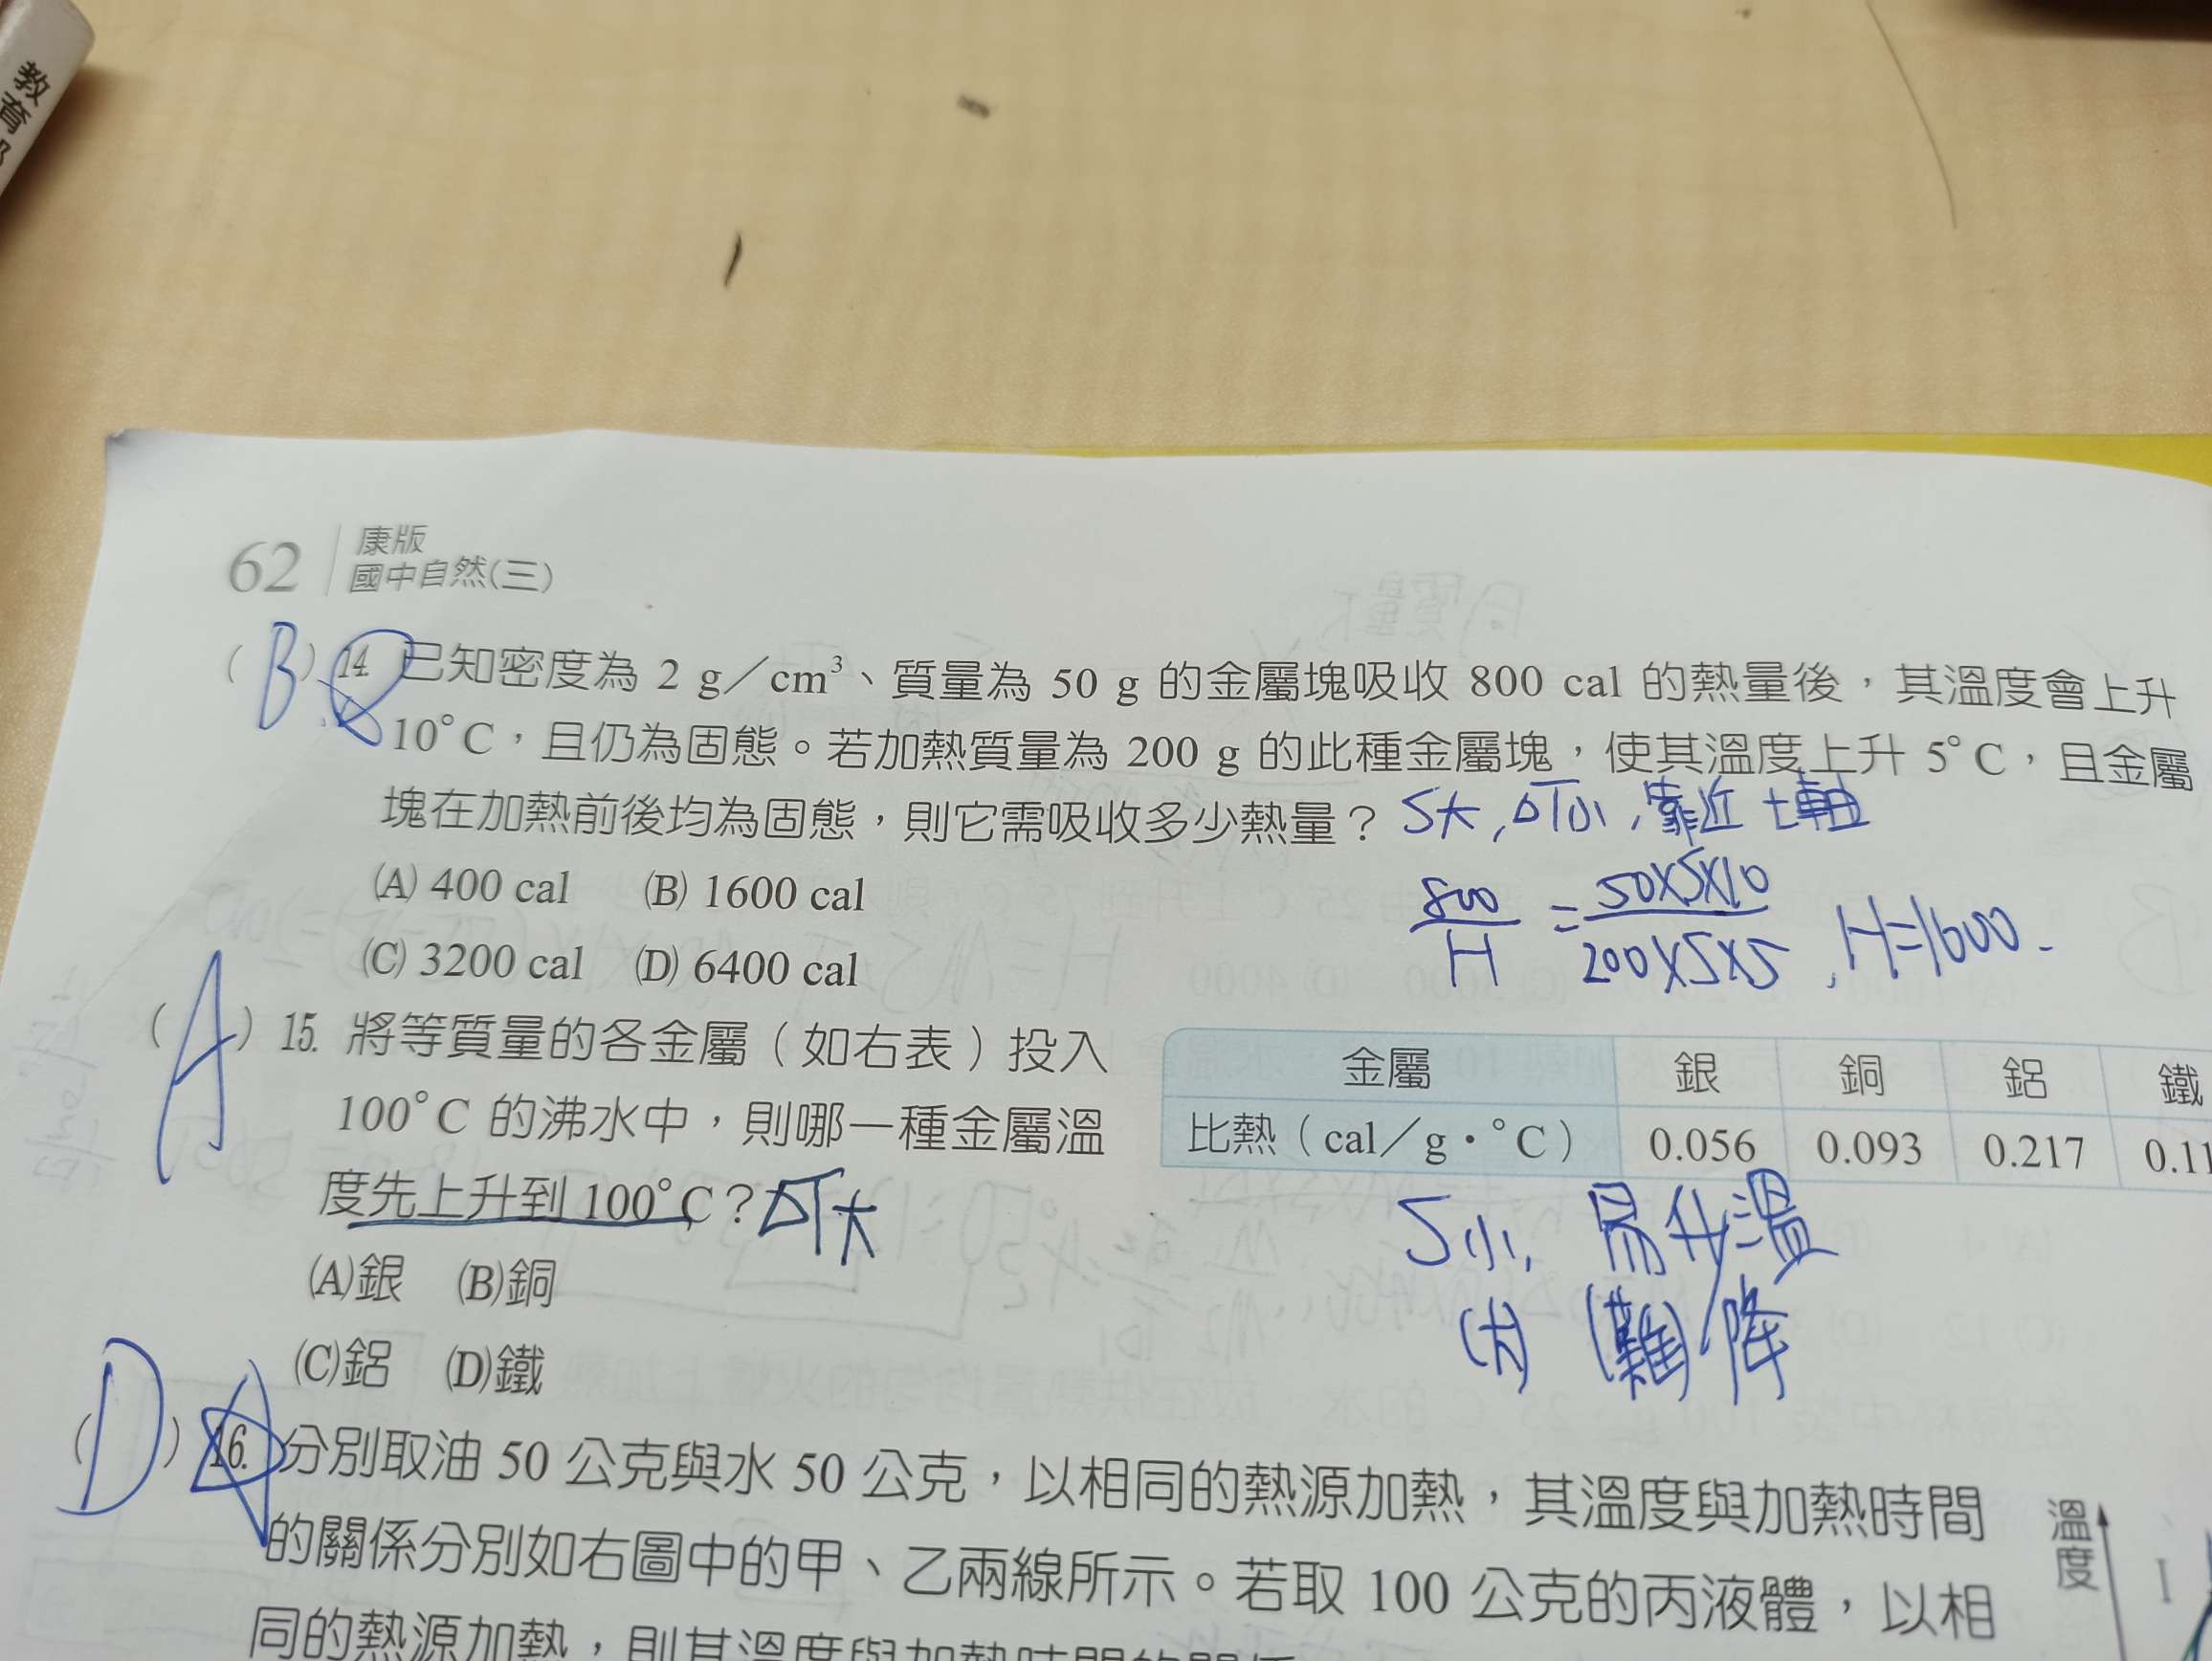 教育部
62 康版
國中自然(三)
(B) 14. 已知密度為 2 g／cm³、質量為 50 g 的金屬塊吸收 800 cal 的熱量後，其溫度會上升
10°C，且仍為固態。若加熱質量為 200 g 的此種金屬塊，使其溫度上升 5°C，且金屬
塊在加熱前後均為固態，則它需吸收多少熱量？ S大，△T小，靠近 t軸
(A) 400 cal (B) 1600 cal
(C) 3200 cal (D) 6400 cal
800/H = 50×S×10/200×S×5，H=1600.
(A) 15. 將等質量的各金屬（如右表）投入
100°C 的沸水中，則哪一種金屬溫
度先上升到 100°C？ △T大
(A)銀 (B)銅
(C)鋁 (D)鐵
金屬 銀 銅 鋁 鐵
比熱（cal／g・°C） 0.056 0.093 0.217 0.11
S小，易升溫
(大) (難) 降
(D) 16. 分別取油 50 公克與水 50 公克，以相同的熱源加熱，其溫度與加熱時間
的關係分別如右圖中的甲、乙兩線所示。若取 100 公克的丙液體，以相
同的熱源加熱，則其溫度與加熱時間的關係
溫度
I